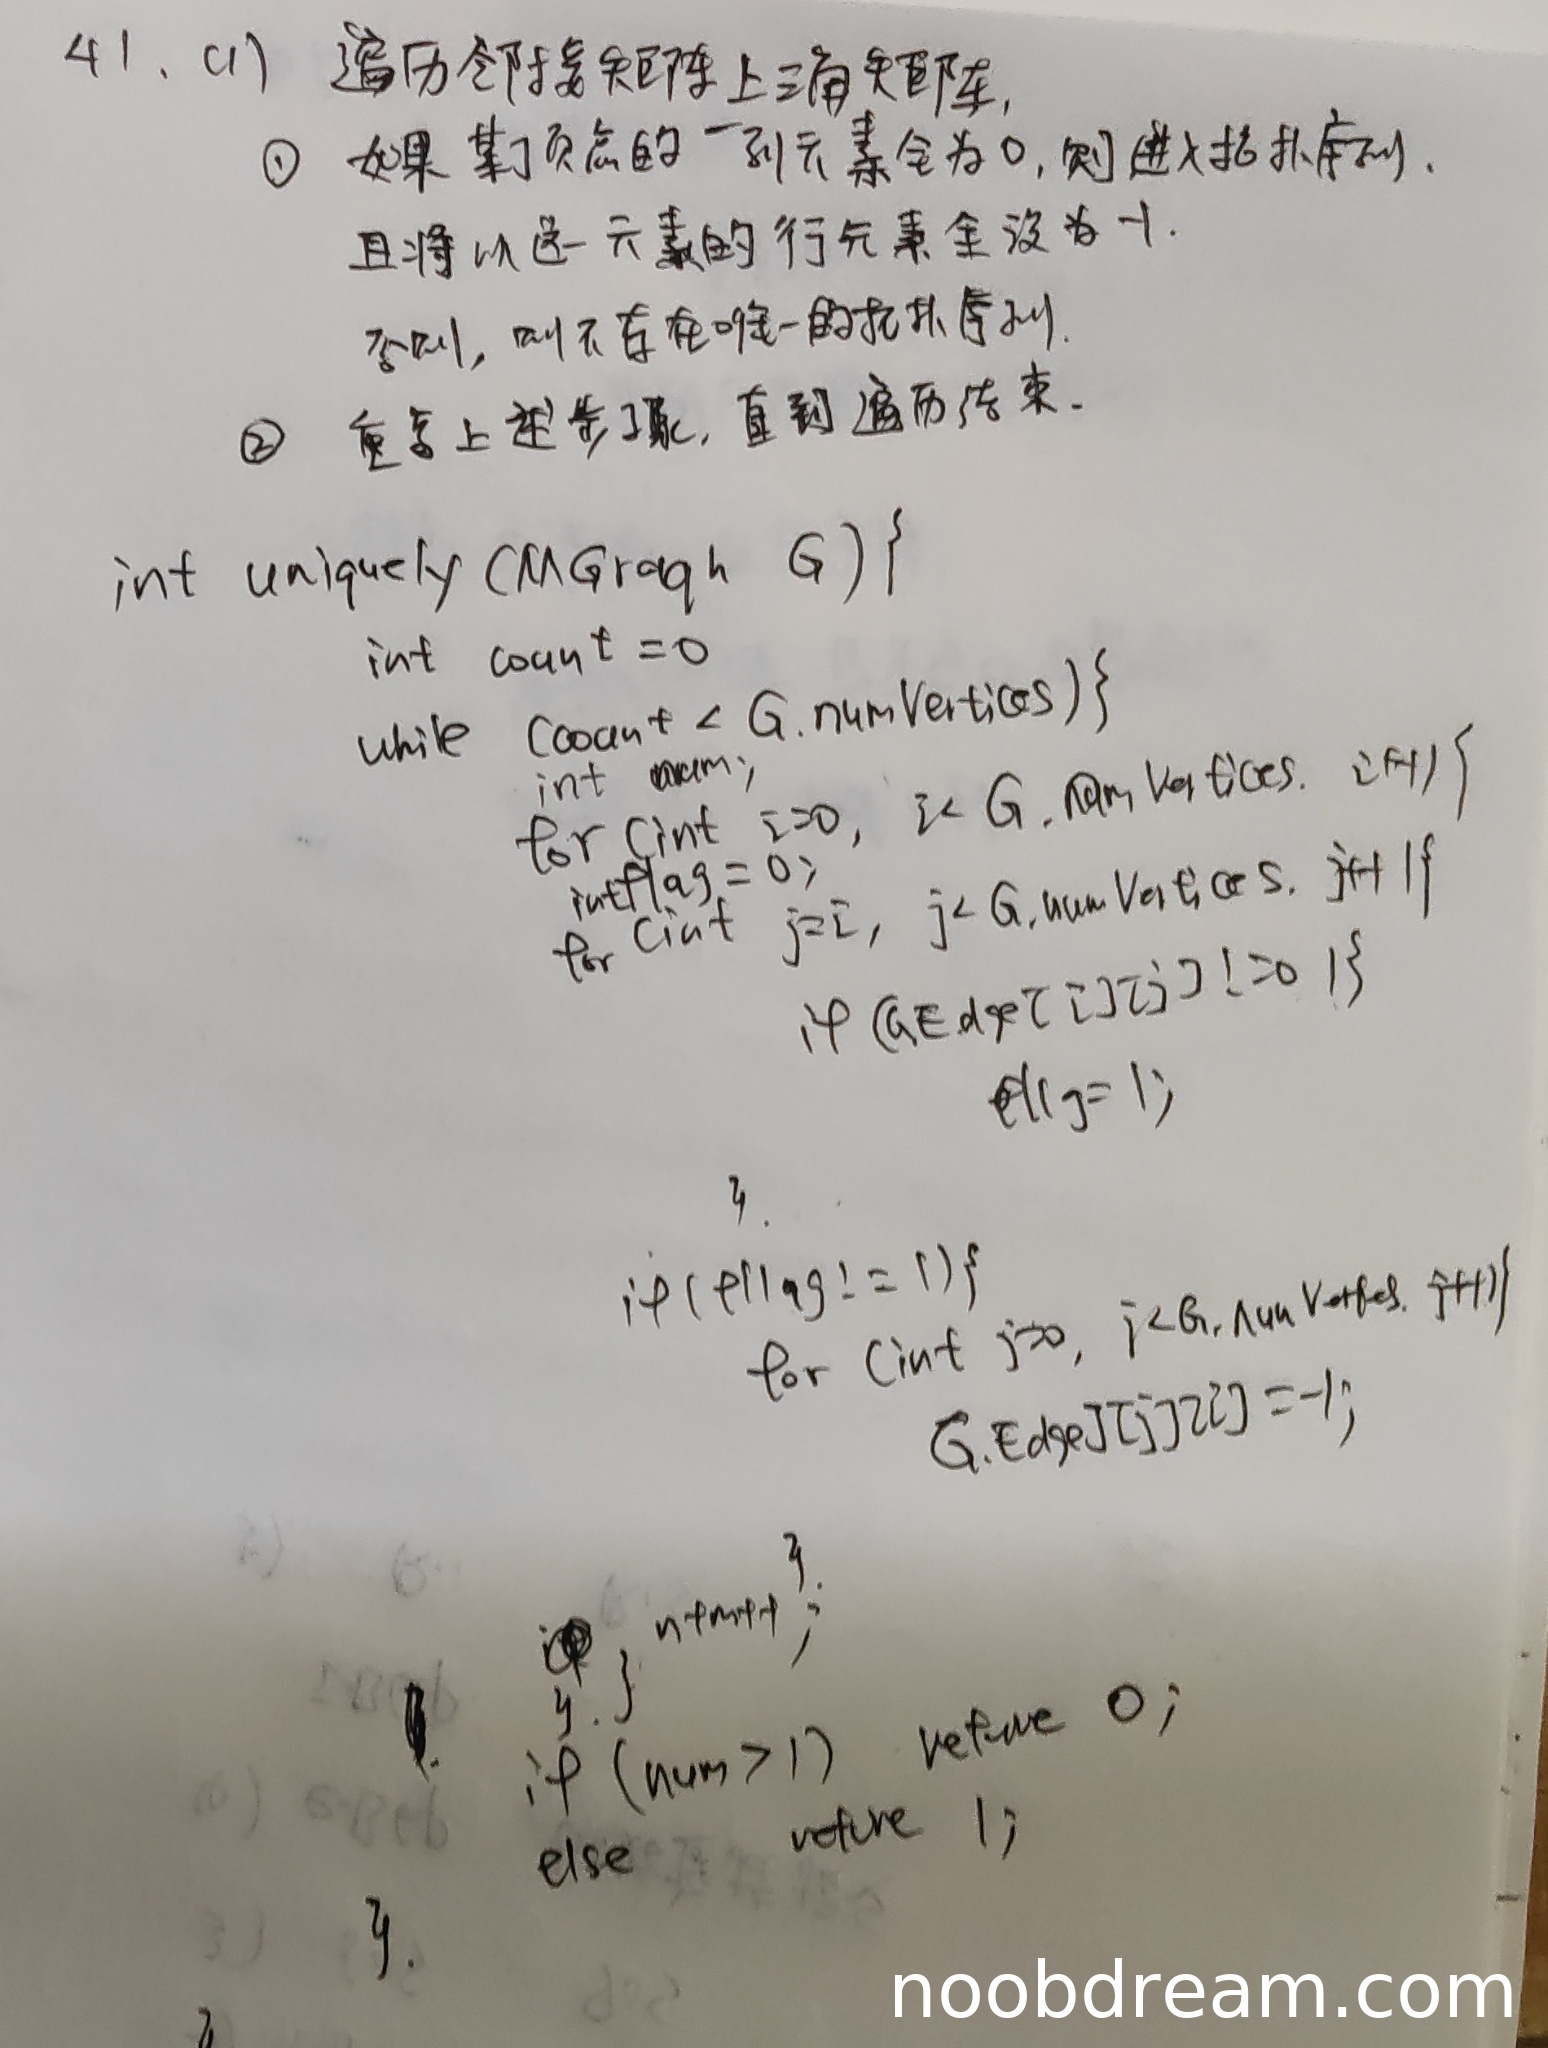 41. (1) 遍历邻接矩阵上三角矩阵,
① 如果某顶点的一列元素全为0, 则进入拓扑序列.
且将以这一元素的行元素全设为-1.
否则, 则不存在唯一的拓扑序列.
② 重复上述步骤, 直到遍历结束.
int uniquely (MGraqh G) {
int count = 0
while (count < G.numVertices) }
int num;
for (int i=0, i< G.numVertices. i++) {
int flag = 0;
for (int j=i, j< G.numVertices. j++ ) {
if (G.Edge[i][j] != 0 ) }
fllg = 1;
}.
if (fllag != 1) {
for (int j=0, j<G.numVertices. j++) {
G.Edge][j][i] = -1;
}.
} num++;
}.
if (num > 1) return 0;
else return 1;
}.
}
noobdream.com